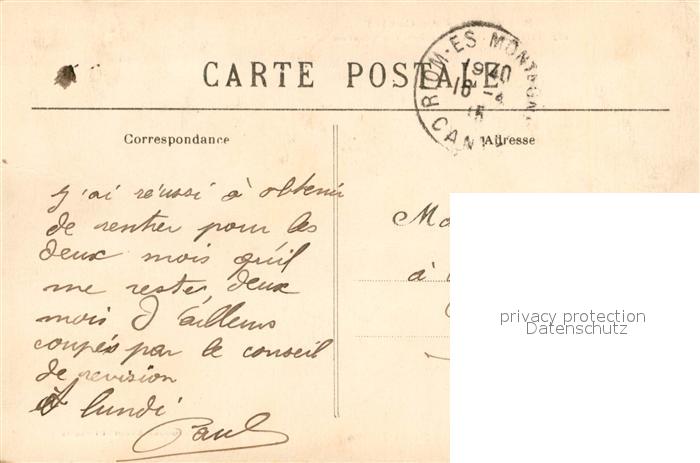 CARTE POSTALE
RIOM-ES-MONTAGN
19 40
16 -4
15
CANT
Correspondance
Adresse
J'ai réussi à obtenir
de rentrer pour les
deux mois qu'il
me rester deux
mois d'ailleurs
coupés par le conseil
de revision
A lundi
Paul
Ma
à
privacy protection
Datenschutz